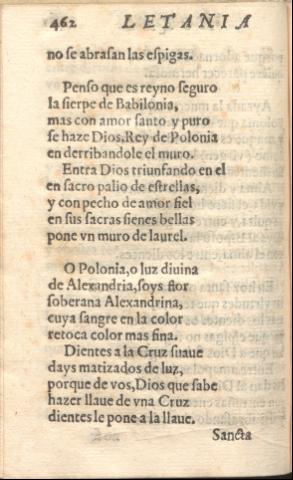 462 LETANIA
no se abrasan las espigas.
Penso que es reyno seguro
la sierpe de Babilonia,
mas con amor santo y puro
se haze Dios, Rey de Polonia
en derribandole el muro.
Entra Dios triunfando en el
en sacro palio de estrellas,
y con pecho de amor fiel
en sus sacras sienes bellas
pone vn muro de laurel.
O Polonia, o luz diuina
de Alexandria, soys flor
soberana Alexandrina,
cuya sangre en la color
retoca color mas fina.
Dientes a la Cruz suaue
days matizados de luz,
porque de vos, Dios que sabe
hazer llaue de vna Cruz
dientes le pone a la llaue.
Sancta